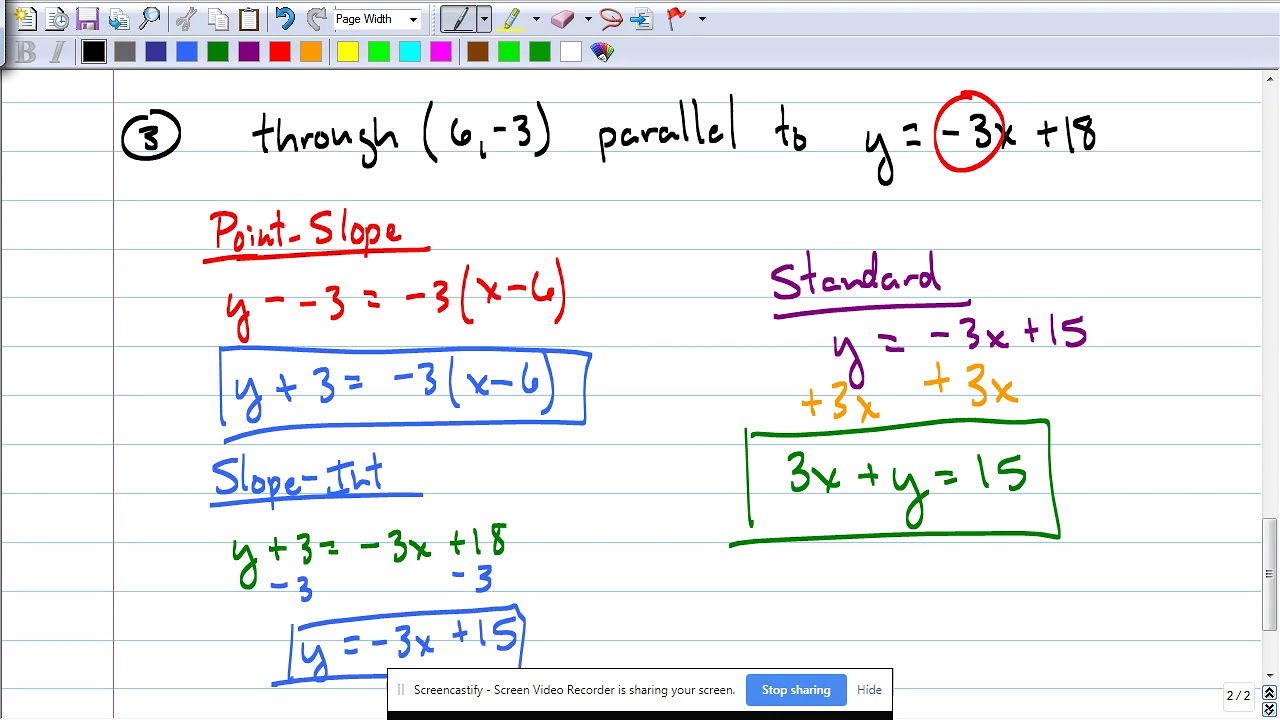 Page Width
B I
3 through (6,-3) parallel to y = -3x +18
Point-Slope
y - -3 = -3(x-6)
y + 3 = -3(x-6)
Slope-Int
y + 3 = -3x +18
-3 -3
y = -3x +15
Standard
y = -3x +15
+3x +3x
3x + y = 15
Screencastify - Screen Video Recorder is sharing your screen. Stop sharing Hide
2 / 2